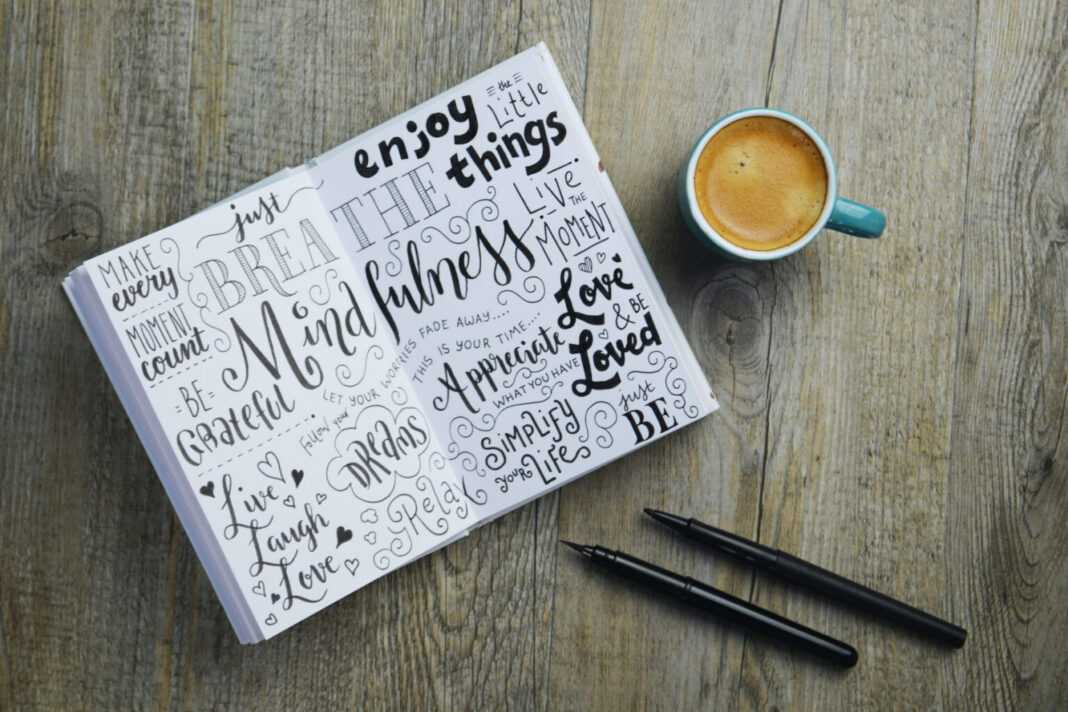 MAKE
every
MOMENT
count
just
BREATHE
Mindfulness
BE
Grateful
LET YOUR WORRIES FADE AWAY....
Follow your
DREAMS
Live
Laugh
Love
Relax
enjoy
the
Little
things
LIVE
THE
MOMENT
THIS IS YOUR TIME....
Love
& BE
Loved
Appreciate
WHAT YOU HAVE
SIMPLIFY
your
Life
just
BE